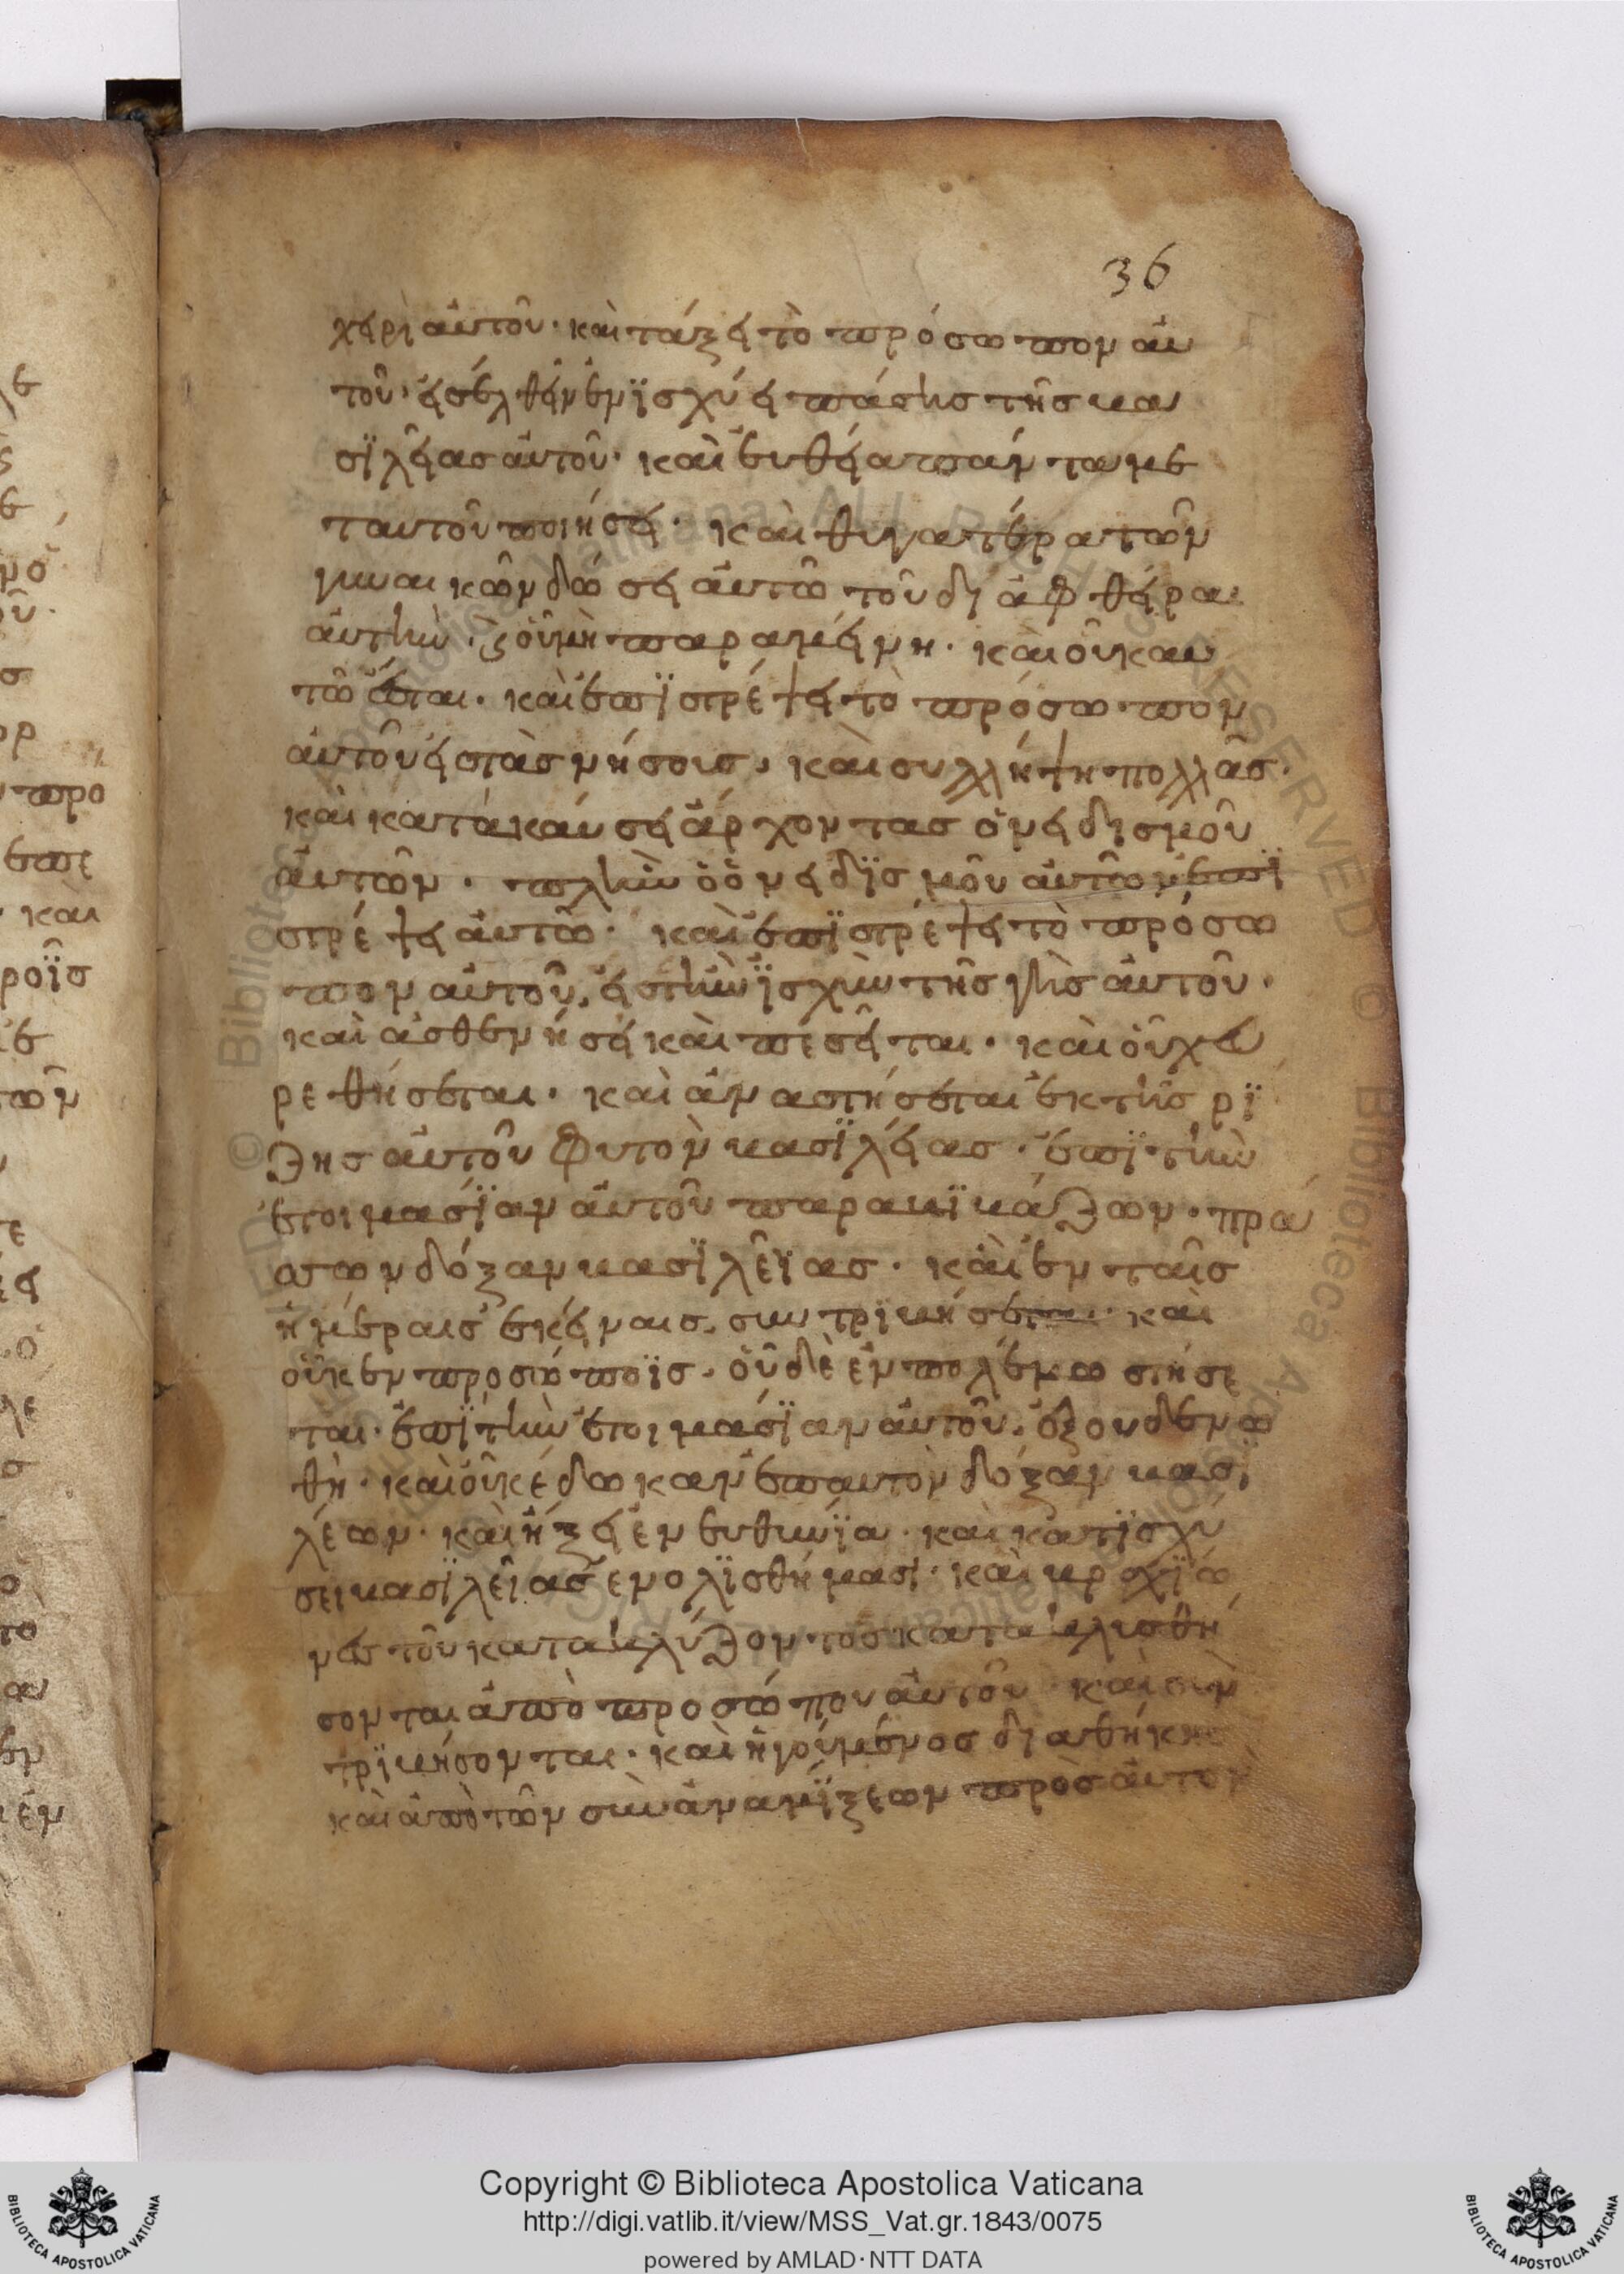 36
χειρὶ αὐτοῦ· καὶ τάξει τὸ πρόσωπον αὐ
τοῦ· εἰσελθεῖν ἐν ἰσχύει πάσης τῆς βα
σϊλείας αὐτοῦ· καὶ εὐθεία πάντα με
τ αυτοῦ ποιήσει· καὶ θυγατέρα τῶν
γυναικῶν δώσει αὐτῶ τοῦ δϊαφθεῖραι
αὐτὴν· ϗ οὐ μὴ παραμείνη· καὶ οὐκ αυ
τῶ ἔσται· καὶ ἐπϊστρέψει τὸ πρόσωπον
αὐτοῦ εἰς τὰς νήσους, καὶ συλλήψη πολλὰς·
καὶ κατακαύσει ἄρχοντας ὀνειδισμοῦ
αὐτῶν· πλὴν ὁ ὀνειδϊσμοῦ αὐτῶν ἐπϊ
στρέψει αὐτῶ· καὶ ἐπϊστρέψει τὸ πρόσω
πον αὐτοῦ, εἰς τὴν ἰσχὺν τῆς γῆς αὐτοῦ·
καὶ ἀσθενήσει καὶ πεσεῖται· καὶ οὐχ εὑ
ρεθήσεται· καὶ ἀναστήσεται ἐκ τῆς ρΐ
ζης αὐτοῦ φυτὸν βασϊλείας· ἐπϊ τὴν
ἑτοιμασΐαν αὐτοῦ παραβϊβάζων· πρά
σσων δόξαν βασϊλεΐας· καὶ ἐν ταῖς
ἡμέραις ἐκείναις, συντρϊβήσεται· καὶ
οὐκ ἐν προσώποϊς· οὐδὲ ἐν πολέμω στήσε
ται· ἐπϊ τὴν ἑτοιμασΐαν αὐτοῦ, ἐξουδενω
θῆ· καὶ οὐκ έδωκαν ἐπ αυτὸν δόξαν βασϊ
λέων· καὶ ἥξει ἐν ευθινΐα· καὶ κατϊσχύ
σει βασϊλεΐας ἐν ολϊσθήμασι· καὶ βραχΐο
νες τοῦ κατακλύζοντος κατακλυσθή
σονται ἀπὸ προσώπου αὐτοῦ καὶ συν
τρϊβήσονται· καὶ ἡγούμενος δϊαθήκης
καὶ ἀπὸ τῶν συναναμΐξεων πρὸς αὐτὸν
Copyright © Biblioteca Apostolica Vaticana
http://digi.vatlib.it/view/MSS_Vat.gr.1843/0075
powered by AMLAD·NTT DATA